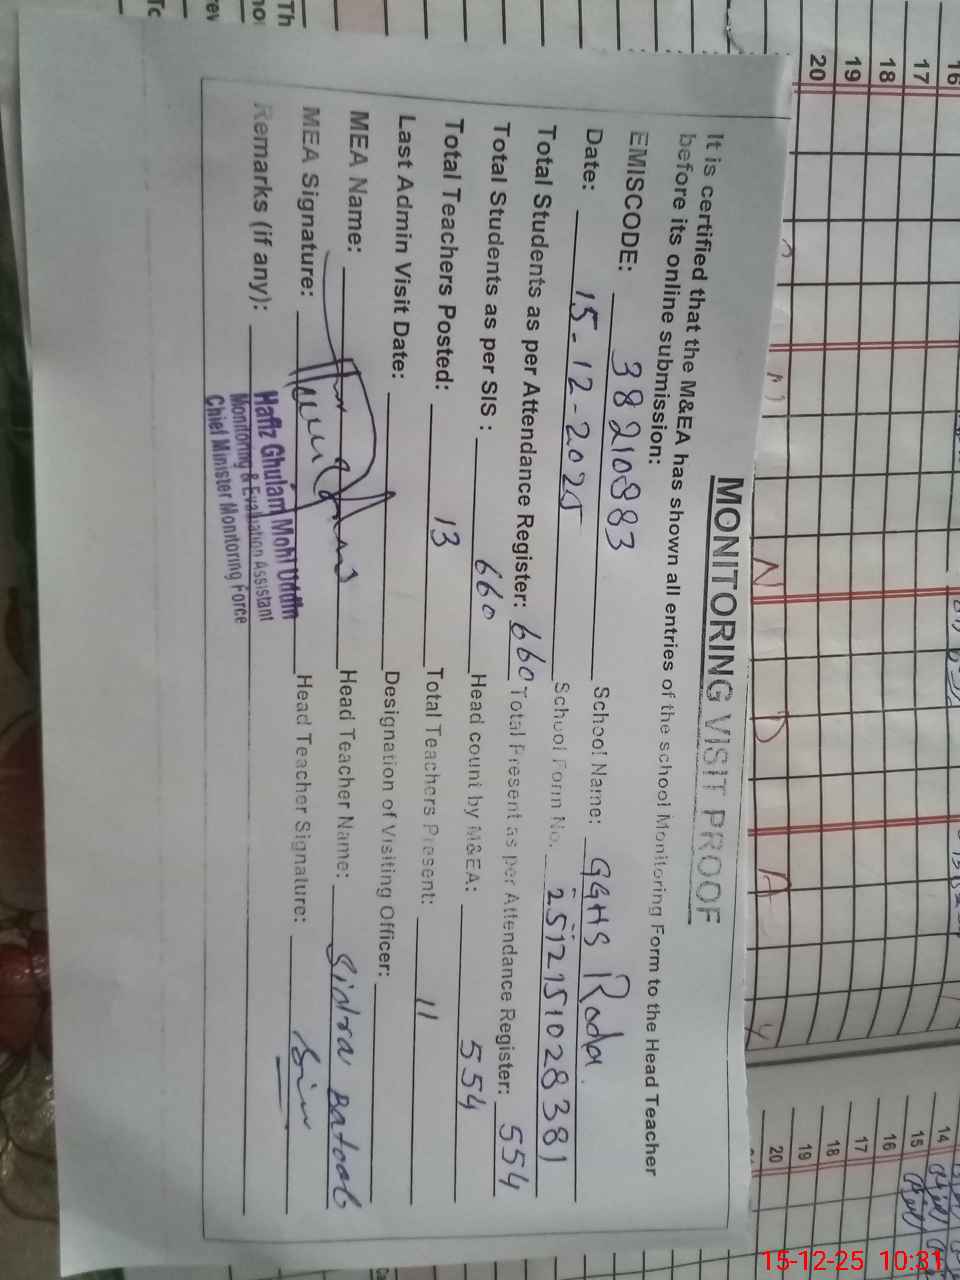 MONITORING VISIT PROOF
It is certified that the M&EA has shown all entries of the school Monitoring Form to the Head Teacher
before its online submission:
EMISCODE: 38210883 School Name: GGHS Roda.
Date: 15-12-2025 School Form No. 2512151028381
Total Students as per Attendance Register: 660 Total Present as per Attendance Register: 554
Total Students as per SIS : 660 Head count by M&EA: 554
Total Teachers Posted: 13 Total Teachers Present: 11
Last Admin Visit Date: Designation of Visiting Officer:
MEA Name: Head Teacher Name: Sidra Batool
MEA Signature: Head Teacher Signature:
Remarks (if any):
Hafiz Ghulam Mohi Uddin
Monitoring & Evaluation Assistant
Chief Minister Monitoring Force
16
17
18
19
20
N D A
14
15
16
17
18
19
20
15-12-25 10:31